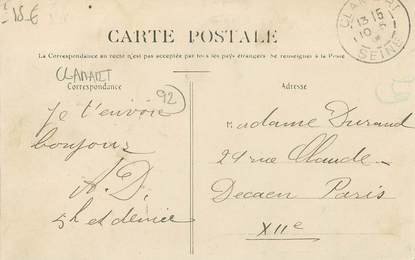 15 €
CLAMART
13 15
10
SEINE
CARTE POSTALE
La Correspondance au recto n'est pas acceptée par tous les pays étrangers. Se renseigner à la Poste
CLAMART
Correspondance
92
Je t'envoie
bonjour
A.D.
5h et demie
Adresse
Madame Durand
29 rue Claude
Decaen Paris
XIIe